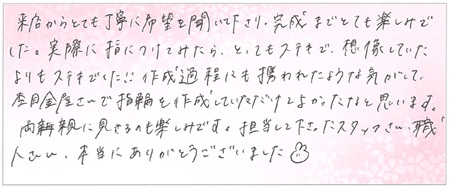 来店からとても丁寧に希望を聞いて下さり、完成までとても楽しみで
した。実際に指につけてみたら、とってもステキで、想像していた
よりもステキでした!! 作成過程にも携われたような気がして、
杢目金屋さんで指輪を作成していただけてよかったなと思います。
両親に見せるのも楽しみです。担当して下さったスタッフさん、職
人さん、本当にありがとうございました